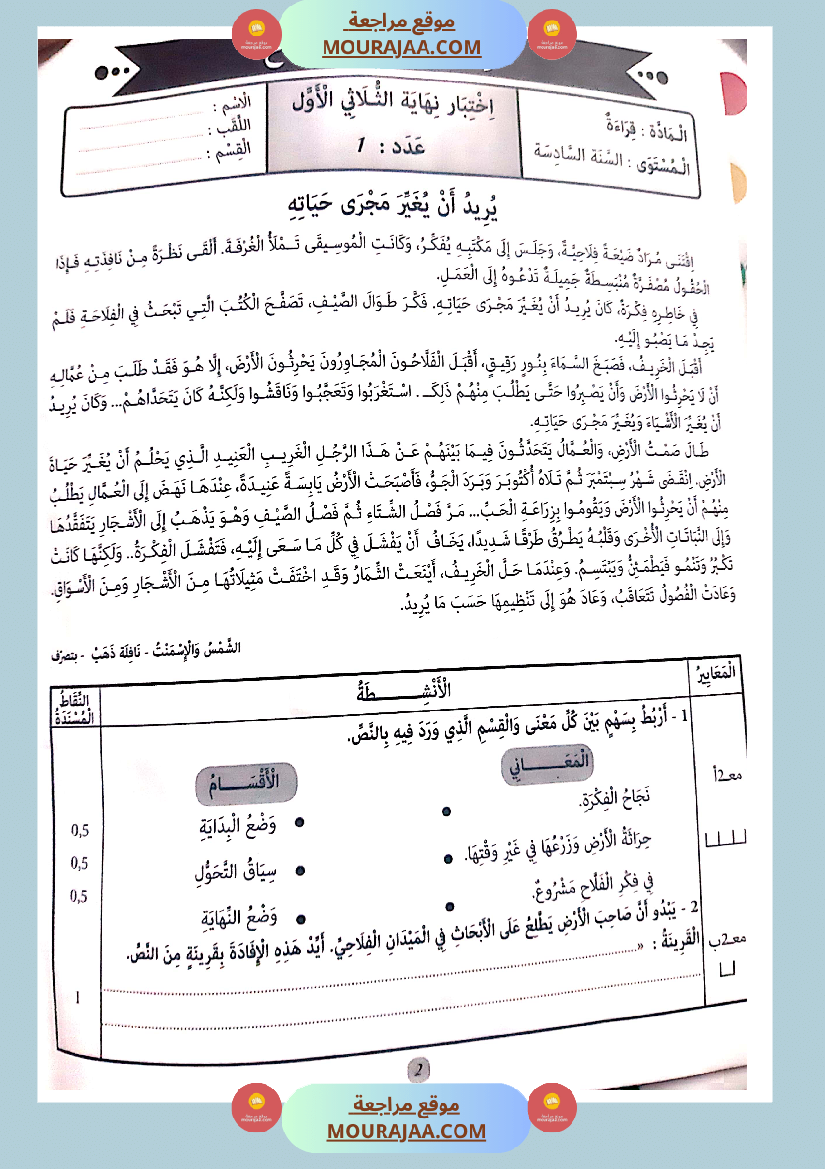 موقع مراجعة
MOURAJAA.COM
اِخْتِبَار نِهَايَة الثُّلَاثِي الْأَوَّل
عَدَد : 1
الْمَادَّة : قِرَاءَةٌ
الْمُسْتَوَى : السَّنَة السَّادِسَة
الْاِسْم :
اللَّقَب :
الْقِسْم :
يُرِيدُ أَنْ يُغَيِّرَ مَجْرَى حَيَاتِهِ
اِقْتَنَى مُرَادٌ ضَيْعَةً فِلَاحِيَّةً، وَجَلَسَ إِلَى مَكْتَبِهِ يُفَكِّرُ، وَكَانَتِ الْمُوسِيقَى تَمْلَأُ الْغُرْفَةَ. أَلْقَى نَظْرَةً مِنْ نَافِذَتِهِ فَإِذَا
الْحُقُولُ مُصْفَرَّةٌ مُنْبَسِطَةٌ جَمِيلَةٌ تَدْعُوهُ إِلَى الْعَمَلِ.
فِي خَاطِرِهِ فِكْرَةٌ، كَانَ يُرِيدُ أَنْ يُغَيِّرَ مَجْرَى حَيَاتِهِ. فَكَّرَ طَوَالَ الصَّيْفِ، تَصَفَّحَ الْكُتُبَ الَّتِي تَبْحَثُ فِي الْفِلَاحَةِ فَلَمْ
يَجِدْ مَا يَصْبُو إِلَيْهِ.
أَقْبَلَ الْخَرِيفُ، فَصَبَغَ السَّمَاءَ بِنُورٍ رَقِيقٍ، أَقْبَلَ الْفَلَّاحُونَ الْمُجَاوِرُونَ يَحْرِثُونَ الْأَرْضَ، إِلَّا هُوَ فَقَدْ طَلَبَ مِنْ عُمَّالِهِ
أَنْ لَا يَحْرِثُوا الْأَرْضَ وَأَنْ يَصْبِرُوا حَتَّى يَطْلُبَ مِنْهُمْ ذَلِكَ . اسْتَغْرَبُوا وَتَعَجَّبُوا وَنَاقَشُوا وَلَكِنَّهُ كَانَ يَتَحَدَّاهُمْ... وَكَانَ يُرِيدُ
أَنْ يُغَيِّرَ الْأَشْيَاءَ وَيُغَيِّرَ مَجْرَى حَيَاتِهِ.
طَالَ صَمْتُ الْأَرْضِ، وَالْعُمَّالُ يَتَحَدَّثُونَ فِيمَا بَيْنَهُمْ عَنْ هَذَا الرَّجُلِ الْغَرِيبِ الْعَنِيدِ الَّذِي يَحْلُمُ أَنْ يُغَيِّرَ حَيَاةَ
الْأَرْضِ. اِنْقَضَى شَهْرُ سِبْتَمْبَرَ ثُمَّ تَلَاهُ أُكْتُوبَرَ وَبَرَدَ الْجَوُّ، فَأَصْبَحَتْ الْأَرْضُ يَابِسَةً عَنِيدَةً، عِنْدَهَا نَهَضَ إِلَى الْعُمَّالِ يَطْلُبُ
مِنْهُمْ أَنْ يَحْرِثُوا الْأَرْضَ وَيَقُومُوا بِزِرَاعَةِ الْحَبِّ... مَرَّ فَصْلُ الشِّتَاءِ ثُمَّ فَصْلُ الصَّيْفِ وَهْوَ يَذْهَبُ إِلَى الْأَشْجَارِ يَتَفَقَّدُهَا
وَإِلَى النَّبَاتَاتِ الْأُخْرَى وَقَلْبُهُ يَطْرُقُ طَرْقًا شَدِيدًا، يَخَافُ أَنْ يَفْشَلَ فِي كُلِّ مَا سَعَى إِلَيْهِ، فَتَفْشَلَ الْفِكْرَةُ.. وَلَكِنَّهَا كَانَتْ
تَكْبُرُ وَتَنْمُو فَيَطْمَئِنُّ وَيَبْتَسِمُ. وَعِنْدَمَا حَلَّ الْخَرِيفُ، أَيْنَعَتْ الثِّمَارُ وَقَدِ اخْتَفَتْ مَثِيلَاتُهَا مِنَ الْأَشْجَارِ وَمِنَ الْأَسْوَاقِ.
وَعَادَتْ الْفُصُولُ تَتَعَاقَبُ، وَعَادَ هُوَ إِلَى تَنْظِيمِهَا حَسَبَ مَا يُرِيدُ.
الشَّمْسُ وَالْإِسْمَنْتُ - نَافِلَة ذَهَبْ - بتصرّف
الْمَعَايِيرُ
الْأَنْشِطَةُ
النُّقَاطُ الْمُسْنَدَةُ
1 - أَرْبُطُ بِسَهْمٍ بَيْنَ كُلِّ مَعْنَى وَالْقِسْمِ الَّذِي وَرَدَ فِيهِ بِالنَّصِّ.
معـ2أ
الْمَعَانِي
الْأَقْسَامُ
نَجَاحُ الْفِكْرَةِ.
وَضْعُ الْبِدَايَةِ
0,5
حِرَاثَةُ الْأَرْضِ وَزَرْعُهَا فِي غَيْرِ وَقْتِهَا.
سِيَاقُ التَّحَوُّلِ
0,5
فِي فِكْرِ الْفَلَّاحِ مَشْرُوعٌ.
وَضْعُ النِّهَايَةِ
0,5
2 - يَبْدُو أَنَّ صَاحِبَ الْأَرْضِ يَطَّلِعُ عَلَى الْأَبْحَاثِ فِي الْمَيْدَانِ الْفِلَاحِيِّ. أَيِّدْ هَذِهِ الْإِفَادَةَ بِقَرِينَةٍ مِنَ النَّصِّ.
معـ2ب
الْقَرِينَةُ : «
1
2
موقع مراجعة
MOURAJAA.COM